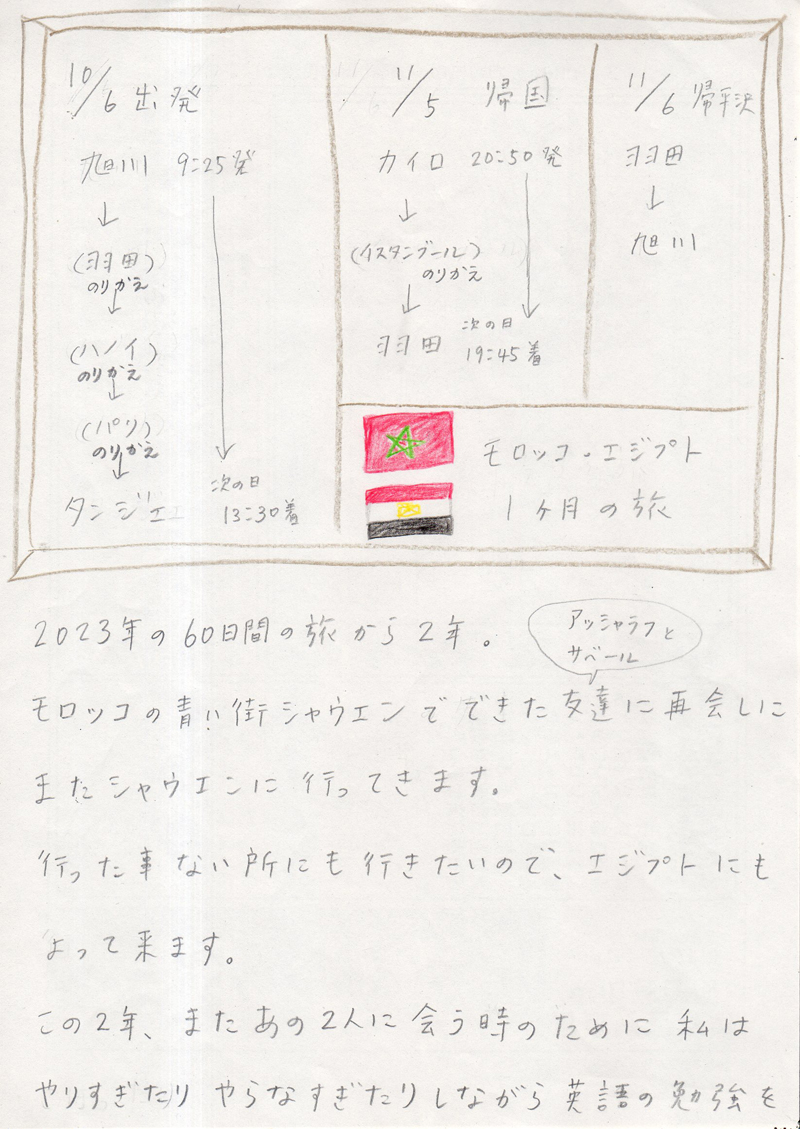 10/6 出発
旭川 9:25発
↓
(羽田)
のりかえ
↓
(ハノイ)
のりかえ
↓
(パリ)
のりかえ
↓
タンジェ 次の日 13:30着
11/5 帰国
カイロ 20:50発
↓
(イスタンブール)
のりかえ
↓
羽田 次の日 19:45着
11/6 帰平沢
羽田
↓
旭川
モロッコ・エジプト
1ヶ月の旅
2023年の60日間の旅から2年。
アッシャラフと
サベール
モロッコの青い街シャウエンでできた友達に再会しに
またシャウエンに行ってきます。
行った事ない所にも行きたいので、エジプトにも
よって来ます。
この2年、またあの2人に会う時のために私は
やりすぎたりやらなすぎたりしながら英語の勉強を